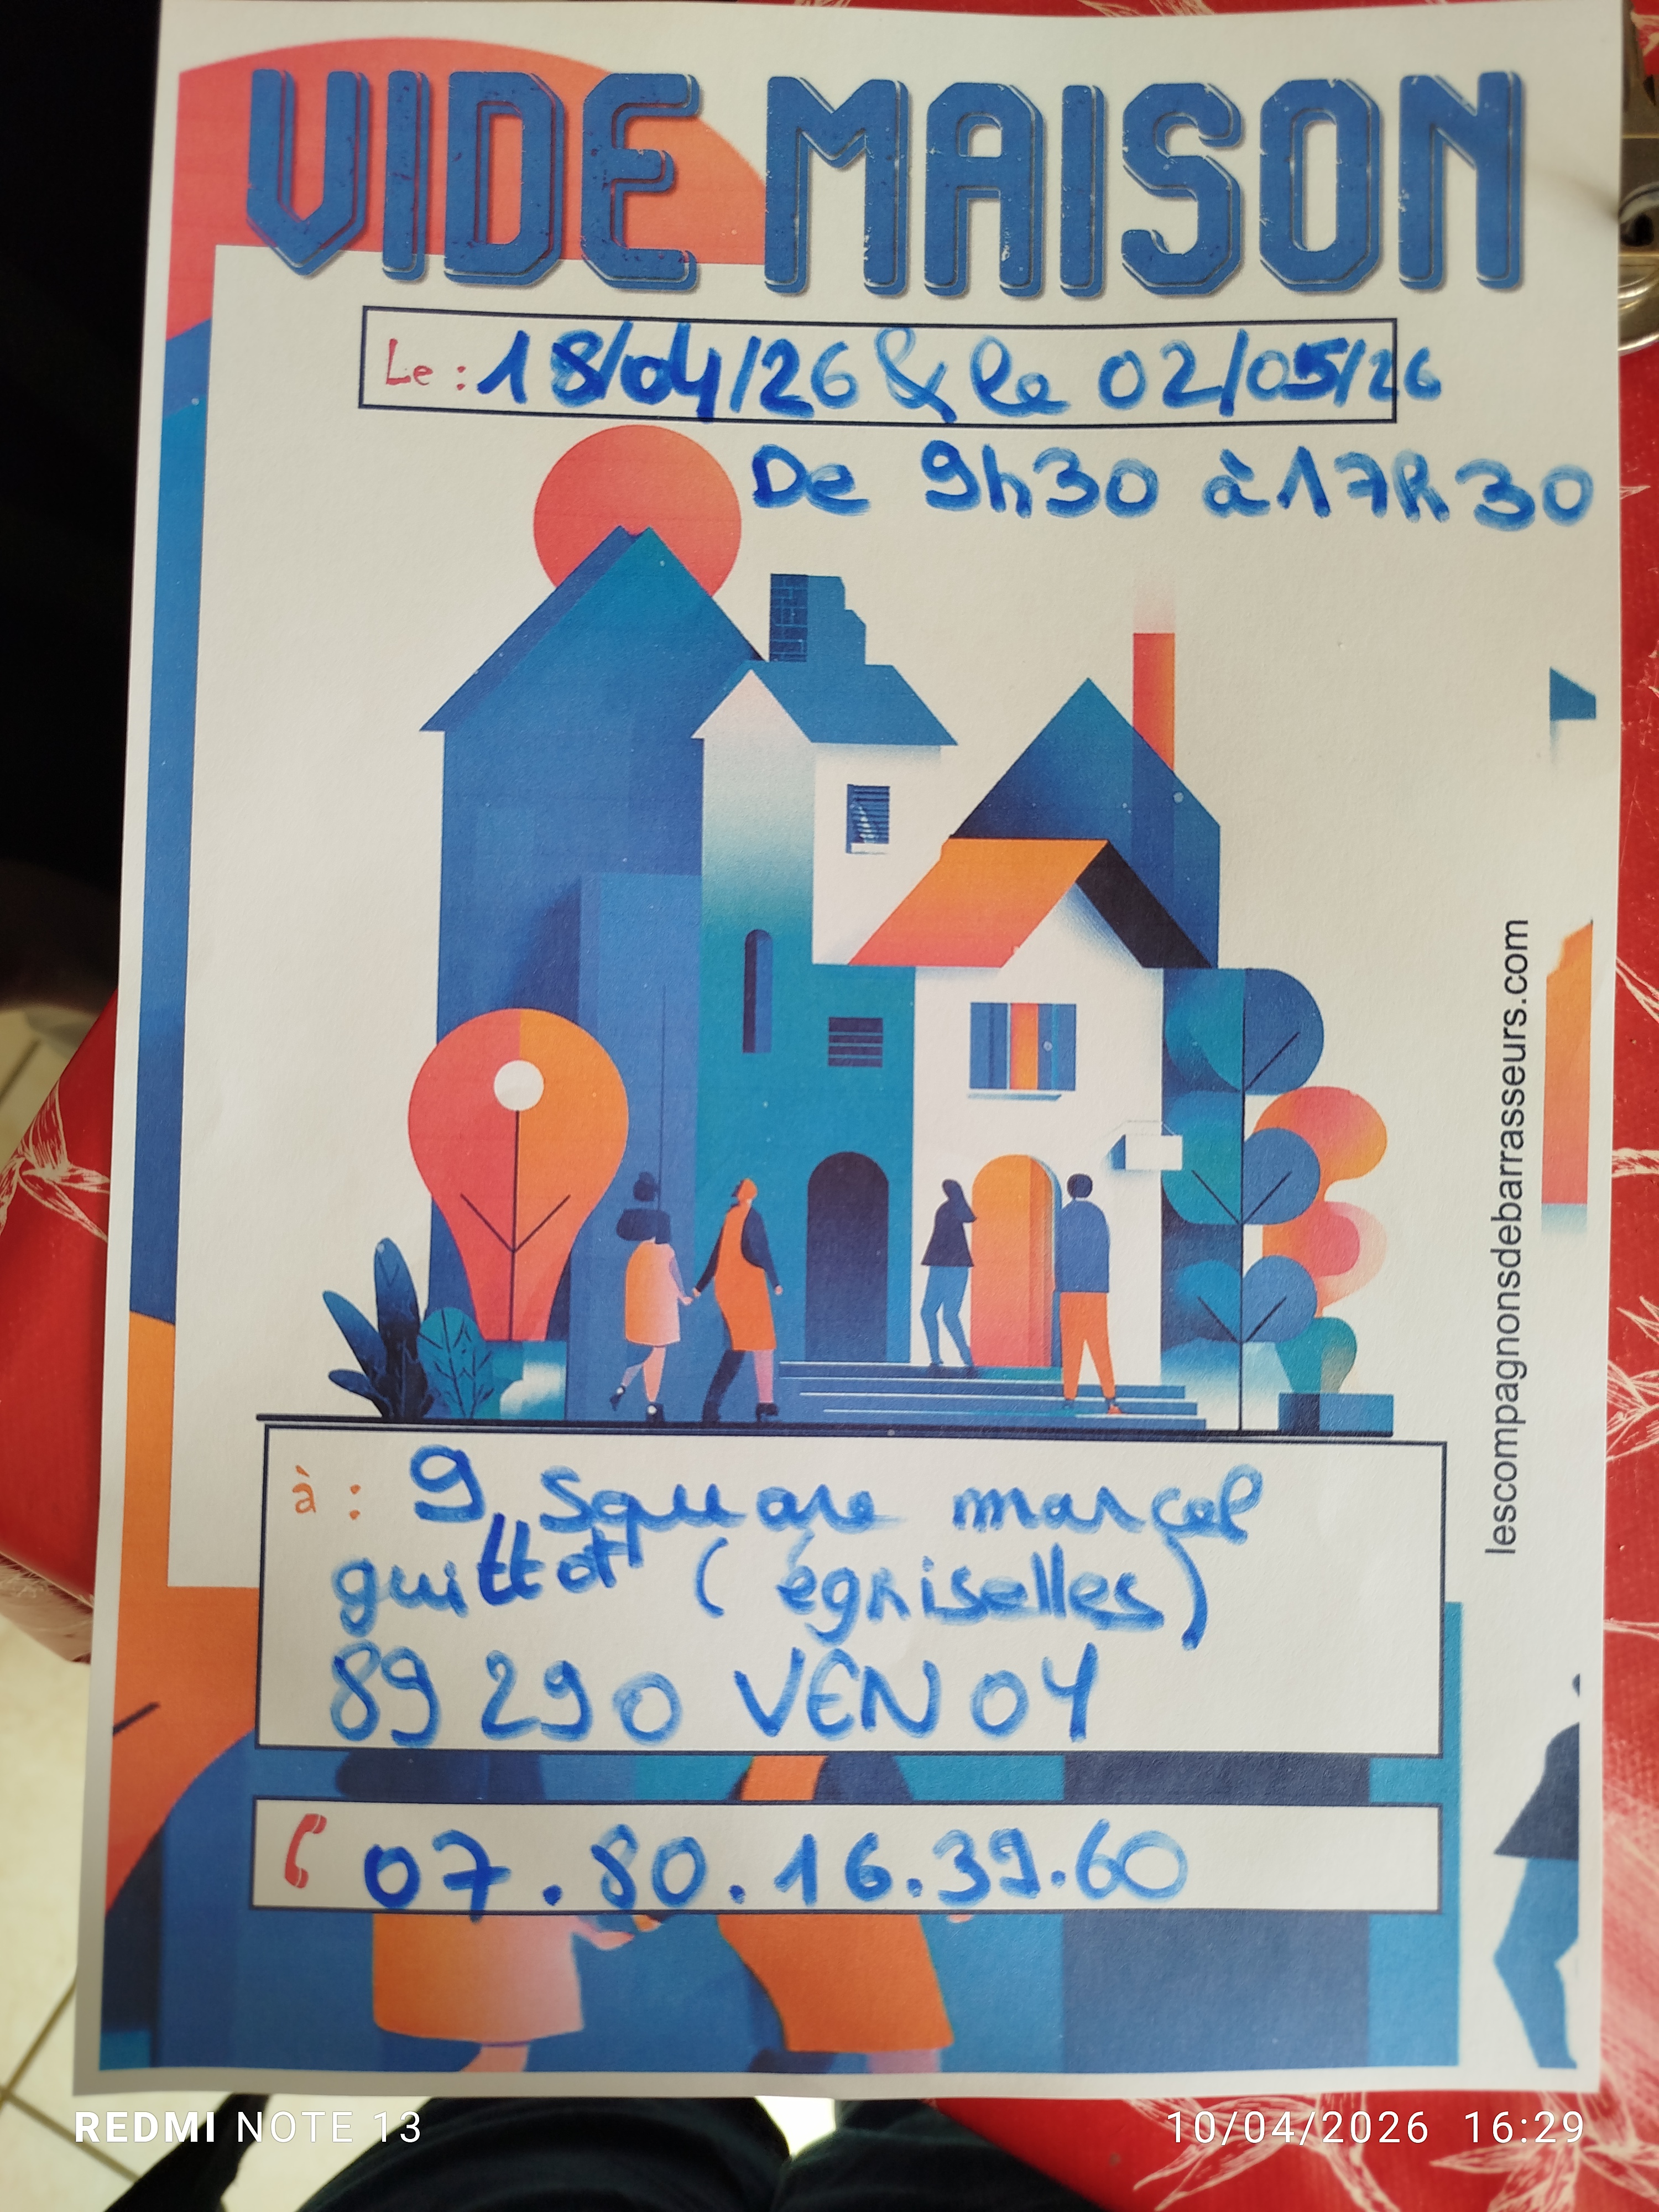 VIDE MAISON
Le : 18/04/26 & le 02/05/26
De 9h30 à 17h30
lescompagnonsdebarrasseurs.com
à : 9, square marcel
guittot (égriselles)
89290 VENOY
07.80.16.39.60
REDMI NOTE 13
10/04/2026 16:29